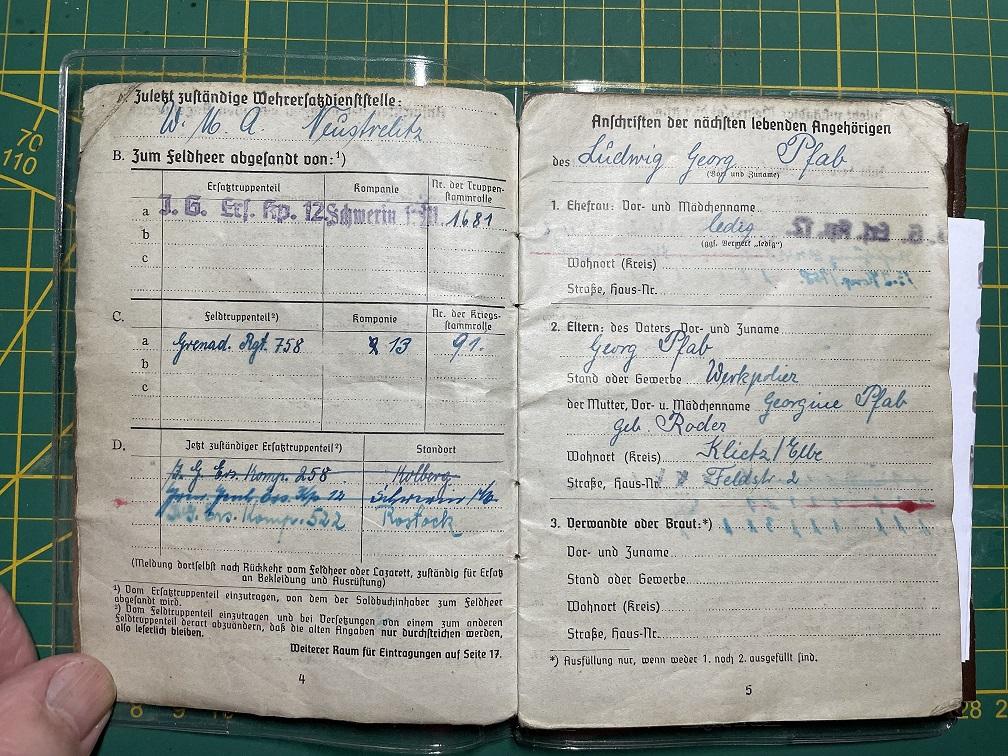 Zuletzt zuständige Wehrersatzdienststelle:
W. M. A. Neustrelitz
B. Zum Feldheer abgesandt von:¹)
Ersatztruppenteil Kompanie Nr. der Truppen-
stammrolle
a J. G. Ers. Kp. 12 Schwerin 1681
b
c
C. Feldtruppenteil²) Kompanie Nr. der Kriegs-
stammrolle
a Grenad. Rgt. 758 13 91.
b
c
D. Jetzt zuständiger Ersatztruppenteil²) Standort
J. G. Ers. Komp. 258 Kolberg
Ers. Kp 12 Schwerin
J. G. Ers. Komp. 522 Rostock
(Meldung dortselbst nach Rückkehr vom Feldheer oder Lazarett, zuständig für Ersatz
an Bekleidung und Ausrüstung)
¹) Vom Ersatztruppenteil einzutragen, von dem der Soldbuchinhaber zum Feldheer
abgesandt wird.
²) Vom Feldtruppenteil einzutragen und bei Versetzungen von einem zum anderen
Feldtruppenteil derart abzuändern, daß die alten Angaben nur durchstrichen werden,
also leserlich bleiben.
Weiterer Raum für Eintragungen auf Seite 17.
4
Anschriften der nächsten lebenden Angehörigen
des Ludwig Georg Pfab
(Vor- und Zuname)
1. Ehefrau: Vor- und Mädchenname
ledig
(ggf. Vermerk „ledig")
Wohnort (Kreis)
Straße, Haus-Nr.
2. Eltern: des Vaters, Vor- und Zuname
Georg Pfab
Stand oder Gewerbe Werkpolier
der Mutter, Vor- u. Mädchenname Georgine Pfab
geb. Roder
Wohnort (Kreis) Klietz/Elbe
Straße, Haus-Nr. Feldstr. 2
3. Verwandte oder Braut:*)
Vor- und Zuname
Stand oder Gewerbe
Wohnort (Kreis)
Straße, Haus-Nr.
*) Ausfüllung nur, wenn weder 1. noch 2. ausgefüllt sind.
5
70
110
8 9 10
28 2